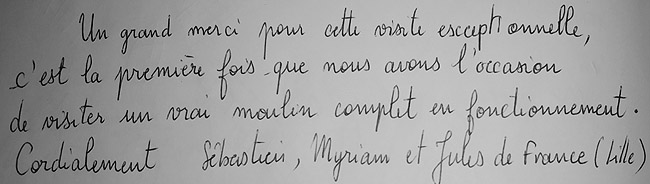 Un grand merci pour cette visite esceptionnelle,
c'est la première fois que nous avons l'occasion
de visiter un vrai moulin complet en fonctionnement.
Cordialement Sébastien, Myriam et Jules de France (Lille)